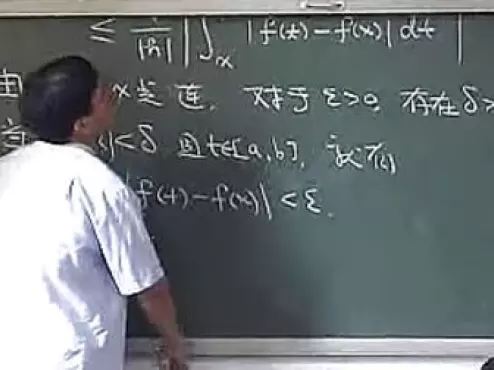 ≤ 1/|h| | ∫ₓ |f(t)-f(x)| dt |
由 x 点连. 对于 ε>0, 存在 δ>
|<δ 且 t∈[a,b], 就有
|f(t)-f(x)|<ε.